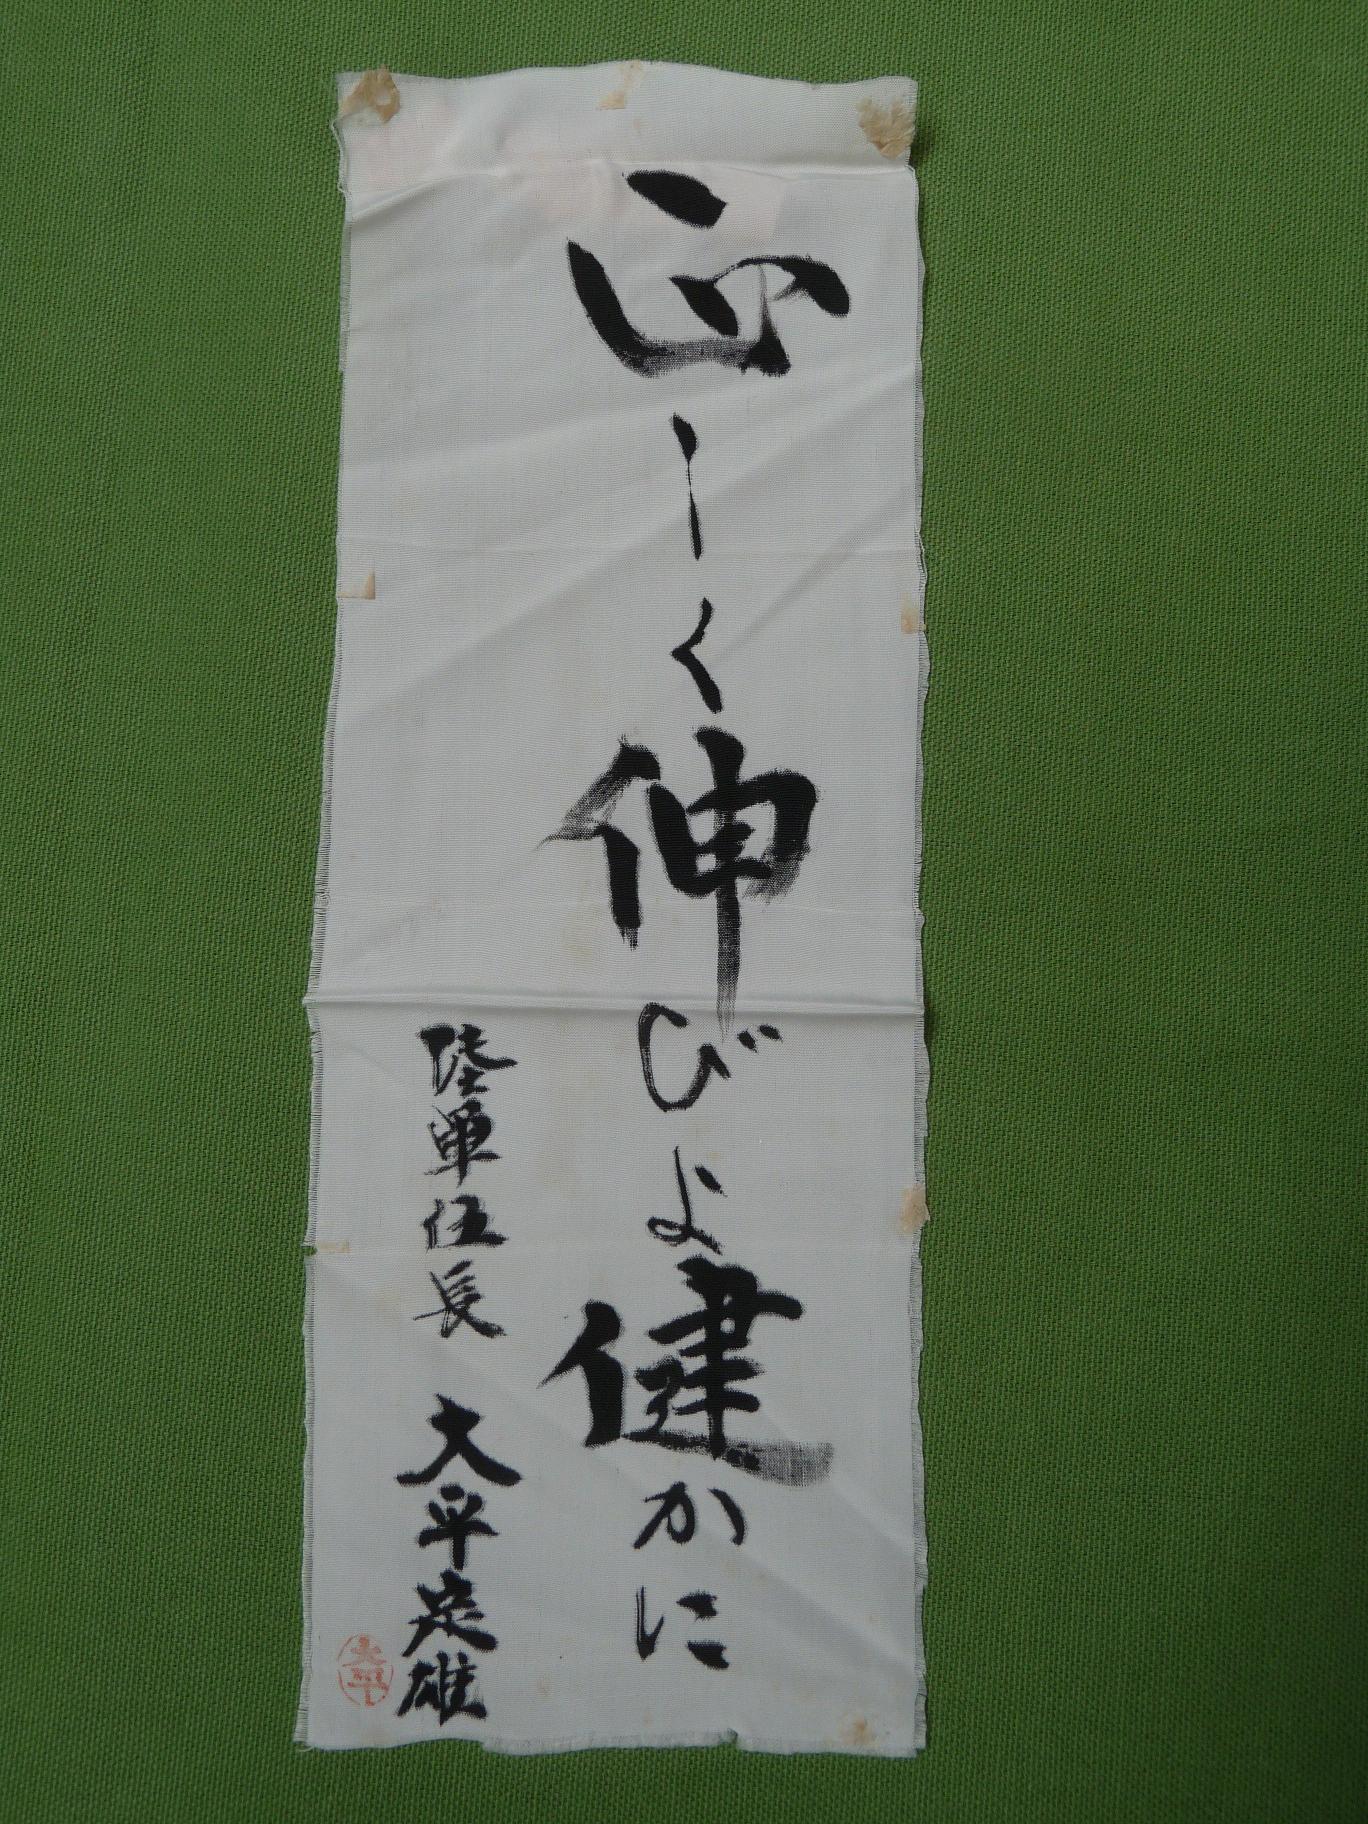 正しく伸びよ健かに
陸軍伍長 大平定雄
大平